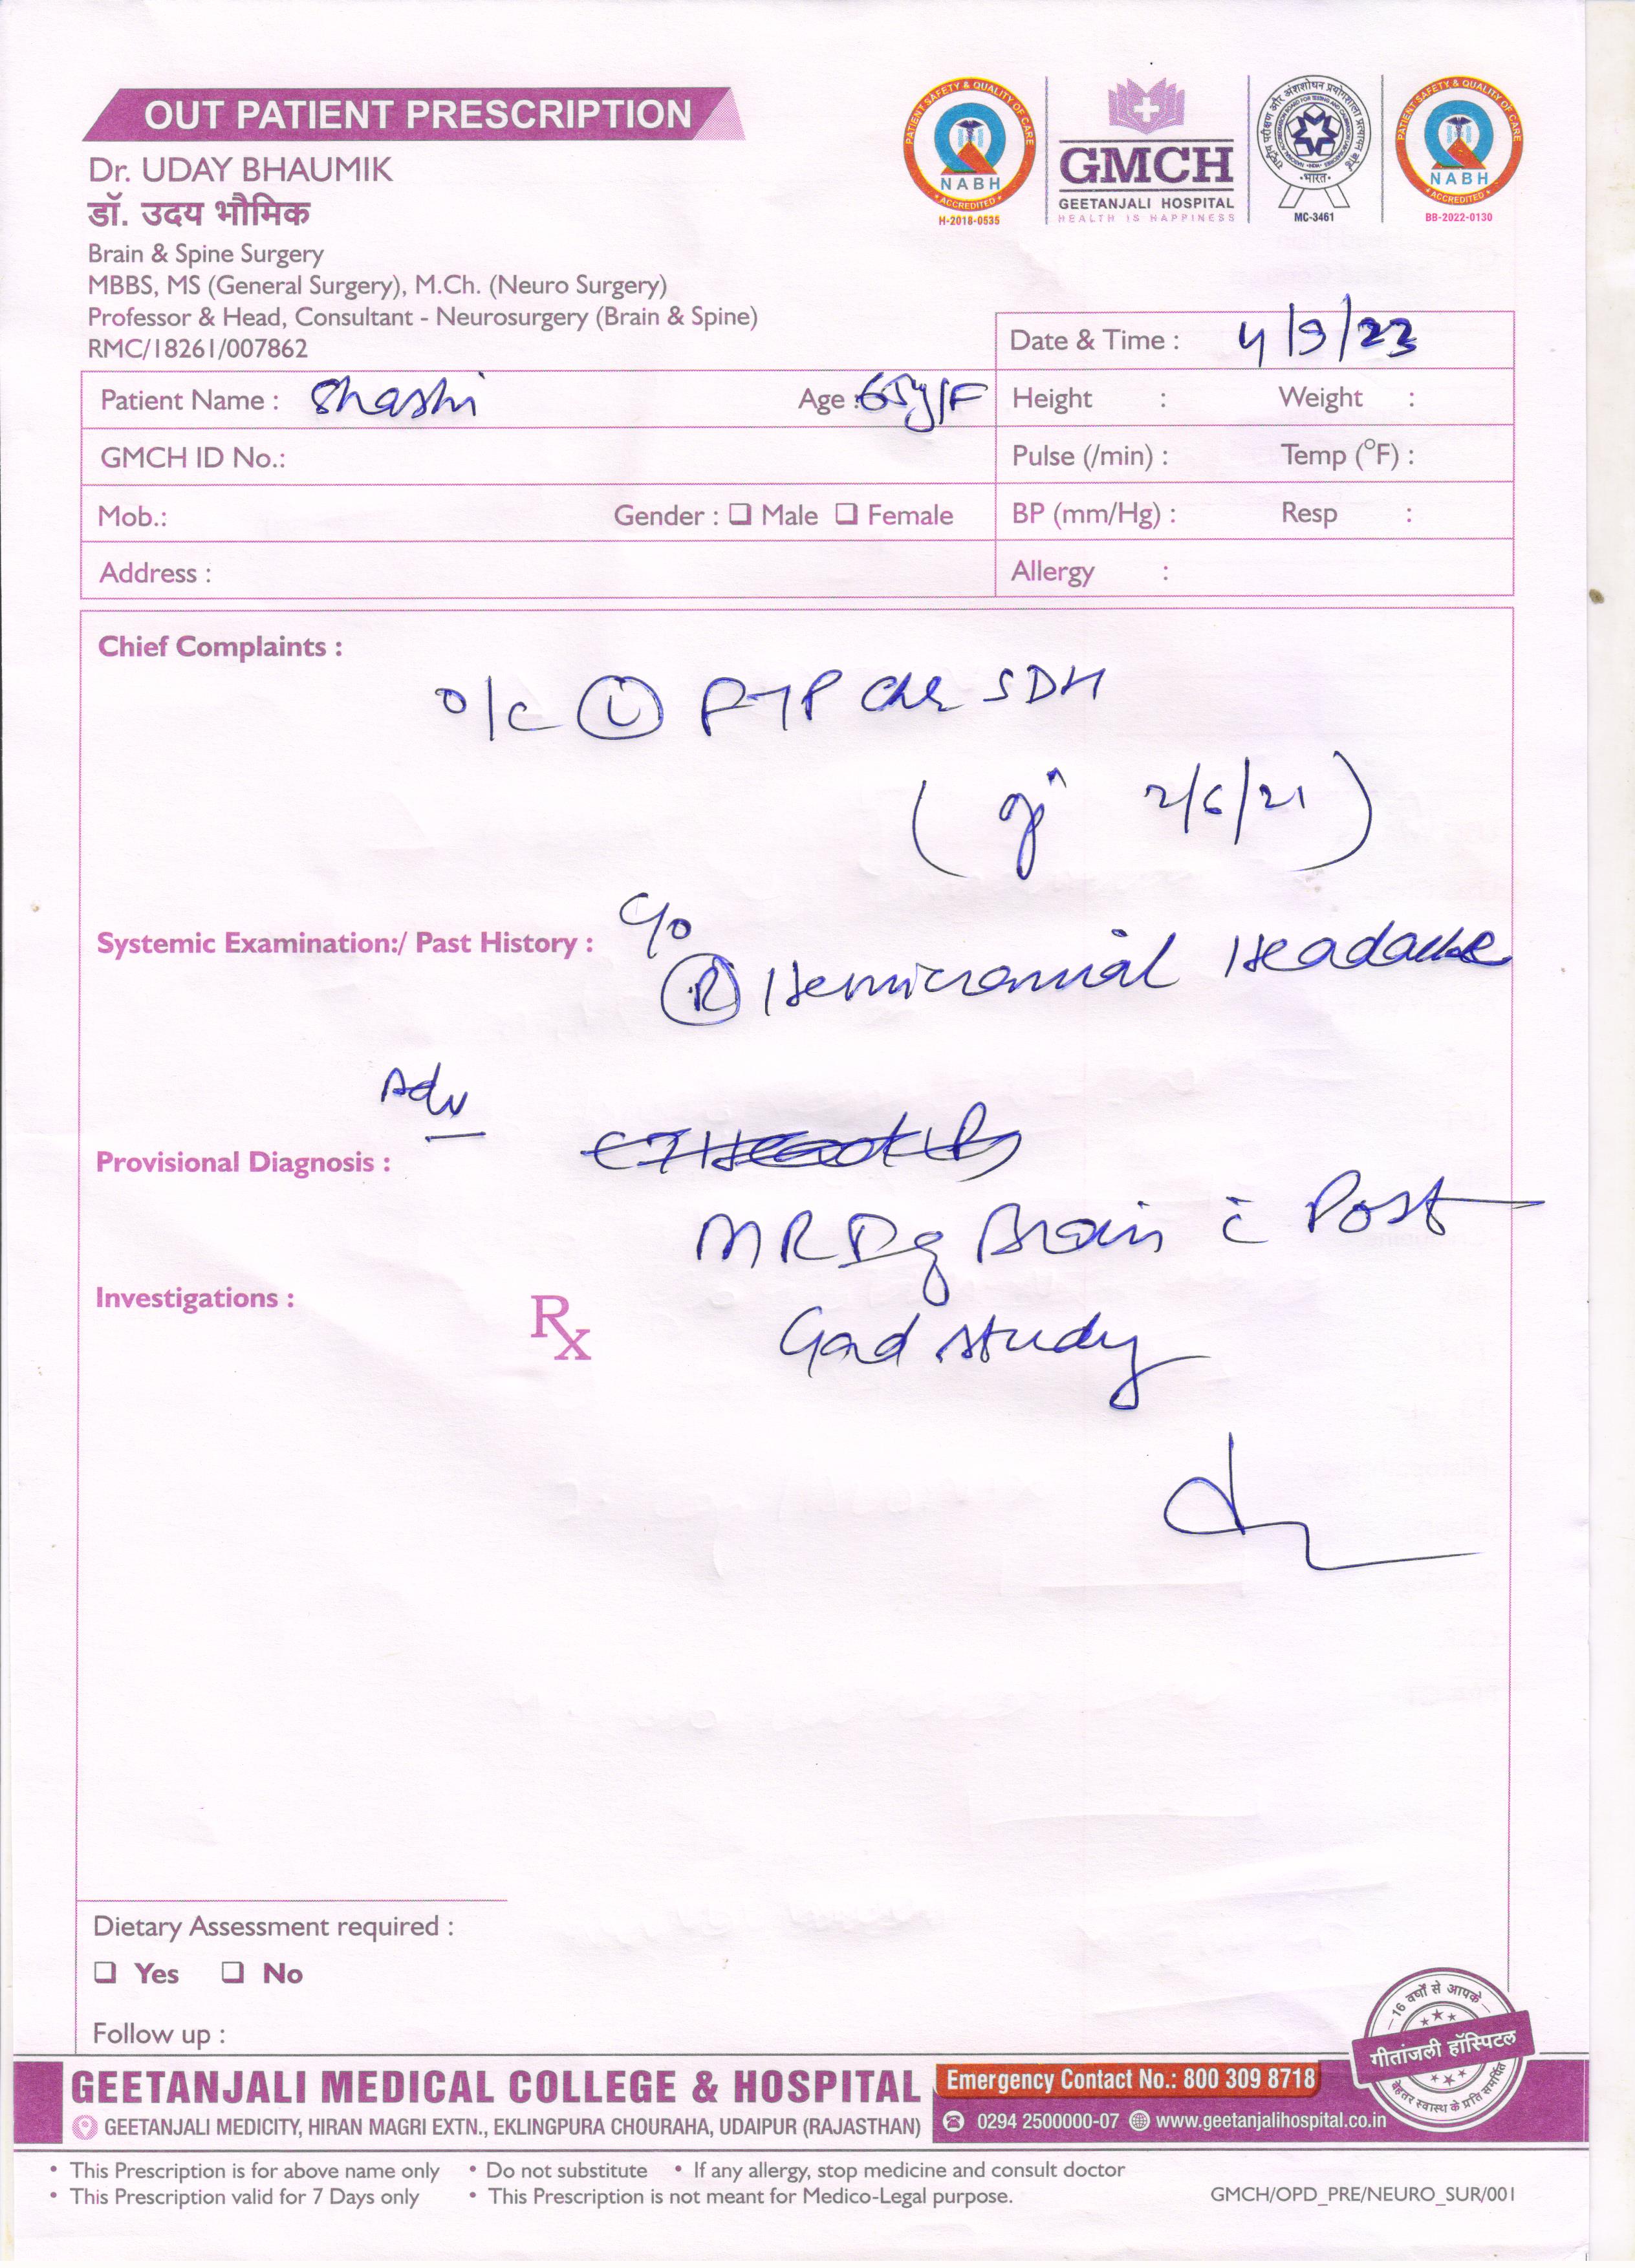 OUT PATIENT PRESCRIPTION
Dr. UDAY BHAUMIK
डॉ. उदय भौमिक
Brain & Spine Surgery
MBBS, MS (General Surgery), M.Ch. (Neuro Surgery)
Professor & Head, Consultant - Neurosurgery (Brain & Spine)
RMC/18261/007862
PATIENT SAFETY & QUALITY OF CARE
NABH
ACCREDITED
H-2018-0535
GMCH
GEETANJALI HOSPITAL
HEALTH IS HAPPINESS
भारत
MC-3461
PATIENT SAFETY & QUALITY OF CARE
NABH
ACCREDITED
BB-2022-0130
Date & Time : 4/9/23
Patient Name : Shashi Age : 65y/F Height : Weight :
GMCH ID No.: Pulse (/min) : Temp (°F) :
Mob.: Gender : ❑ Male ❑ Female BP (mm/Hg) : Resp :
Address : Allergy :
Chief Complaints :
o/c Ⓛ FTP SDH
( 2/6/21 )
c/o
Systemic Examination:/ Past History :
Ⓡ Hemicranial Headache
Adv
Provisional Diagnosis :
MRI Brain c̄ Post
Investigations :
Rx
Gad study
Dietary Assessment required :
❑ Yes ❑ No
Follow up :
16 वर्षों से आपके
गीतांजली हॉस्पिटल
बेहतर स्वास्थ के प्रति समर्पित
GEETANJALI MEDICAL COLLEGE & HOSPITAL
GEETANJALI MEDICITY, HIRAN MAGRI EXTN., EKLINGPURA CHOURAHA, UDAIPUR (RAJASTHAN)
Emergency Contact No.: 800 309 8718
0294 2500000-07 www.geetanjalihospital.co.in
• This Prescription is for above name only • Do not substitute • If any allergy, stop medicine and consult doctor
• This Prescription valid for 7 Days only • This Prescription is not meant for Medico-Legal purpose.
GMCH/OPD_PRE/NEURO_SUR/001